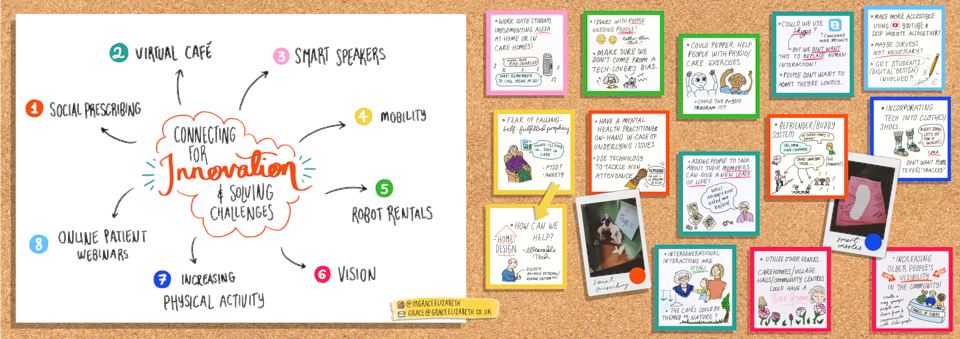 CONNECTING
FOR
Innovation
& SOLVING
CHALLENGES
1 SOCIAL PRESCRIBING
2 VIRTUAL CAFÉ
3 SMART SPEAKERS
4 MOBILITY
5 ROBOT RENTALS
6 VISION
7 INCREASING
PHYSICAL ACTIVITY
8 ONLINE PATIENT
WEBINARS
@IMGRACEELIZABETH
GRACE@GRACEELIZABETH.CO.UK
• WORK WITH STUDENTS
IMPLEMENTING ALEXA
AT HOME OR IN
CARE HOMES!
• ISSUES WITH PEOPLE
NEEDING PEOPLE!
• MAKE SURE WE
DON'T COME FROM A
TECH-LOVER'S BIAS...
• COULD PEPPER HELP
PEOPLE WITH PHYSIO/
CARE EXERCISES
• COULD THE PHYSIO
PROGRAM IT?
• COULD WE USE
Skype?
BUT WE DON'T WANT
THIS TO REPLACE HUMAN
INTERACTION!
• PEOPLE DON'T WANT TO
ADMIT THEY'RE LONELY...
• MAKE MORE ACCESSIBLE
USING YOUTUBE &
SKIP WEBSITE ALTOGETHER?
• MAYBE SURVEYS
NOT NECESSARY?
• GET STUDENTS
(DIGITAL DESIGN)
INVOLVED?!
• FEAR OF FALLING
self-fulfilled prophecy
• PTSD?
• ANXIETY
• HAVE A MENTAL
HEALTH PRACTITIONER
ON-HAND IN-CASE OF
UNDERLYING ISSUES
• USE TECHNOLOGY
TO TACKLE NON
ATTENDANCE
• ASKING PEOPLE TO TALK
ABOUT THEIR MEMORIES
CAN GIVE A NEW LEASE
OF LIFE!
• BEFRIENDER/BUDDY
SYSTEM
• INCORPORATING
TECH INTO CLOTHES/
SHOES...
• DON'T WANT PEOPLE
TO FEEL "TRACKED"
HOME
DESIGN
• HOW CAN WE
HELP?
- Wearable
Tech
Social prescribing
smart
insoles
• INTERGENERATIONAL
INTERACTIONS ARE
VITAL!
• THE CAFÉS COULD BE
THEMED TO NATURE?
• UTILISE OTHER VENUES...
CAREHOMES/VILLAGE
HALLS/COMMUNITY CENTRES
COULD HAVE A
• INCREASING
OLDER PEOPLE'S
VISIBILITY
IN THE COMMUNITY!